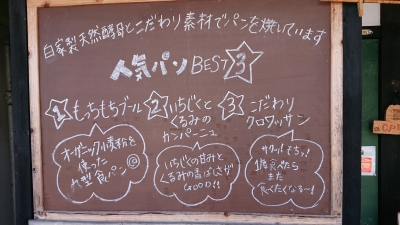 自家製天然酵母とこだわり素材でパンを焼しています
人気パン BEST 3
1 もっちもちブール
オーガニック小麦粉を
使った
丸型食パン
2 いちじくと
くるみの
カンパーニュ
いちじくの甘みと
くるみの香ばしさが
GOOD!!
3 こだわり
クロワッサン
サクッ!もちっ!
1度食べたら
また
食べたくなる〜!